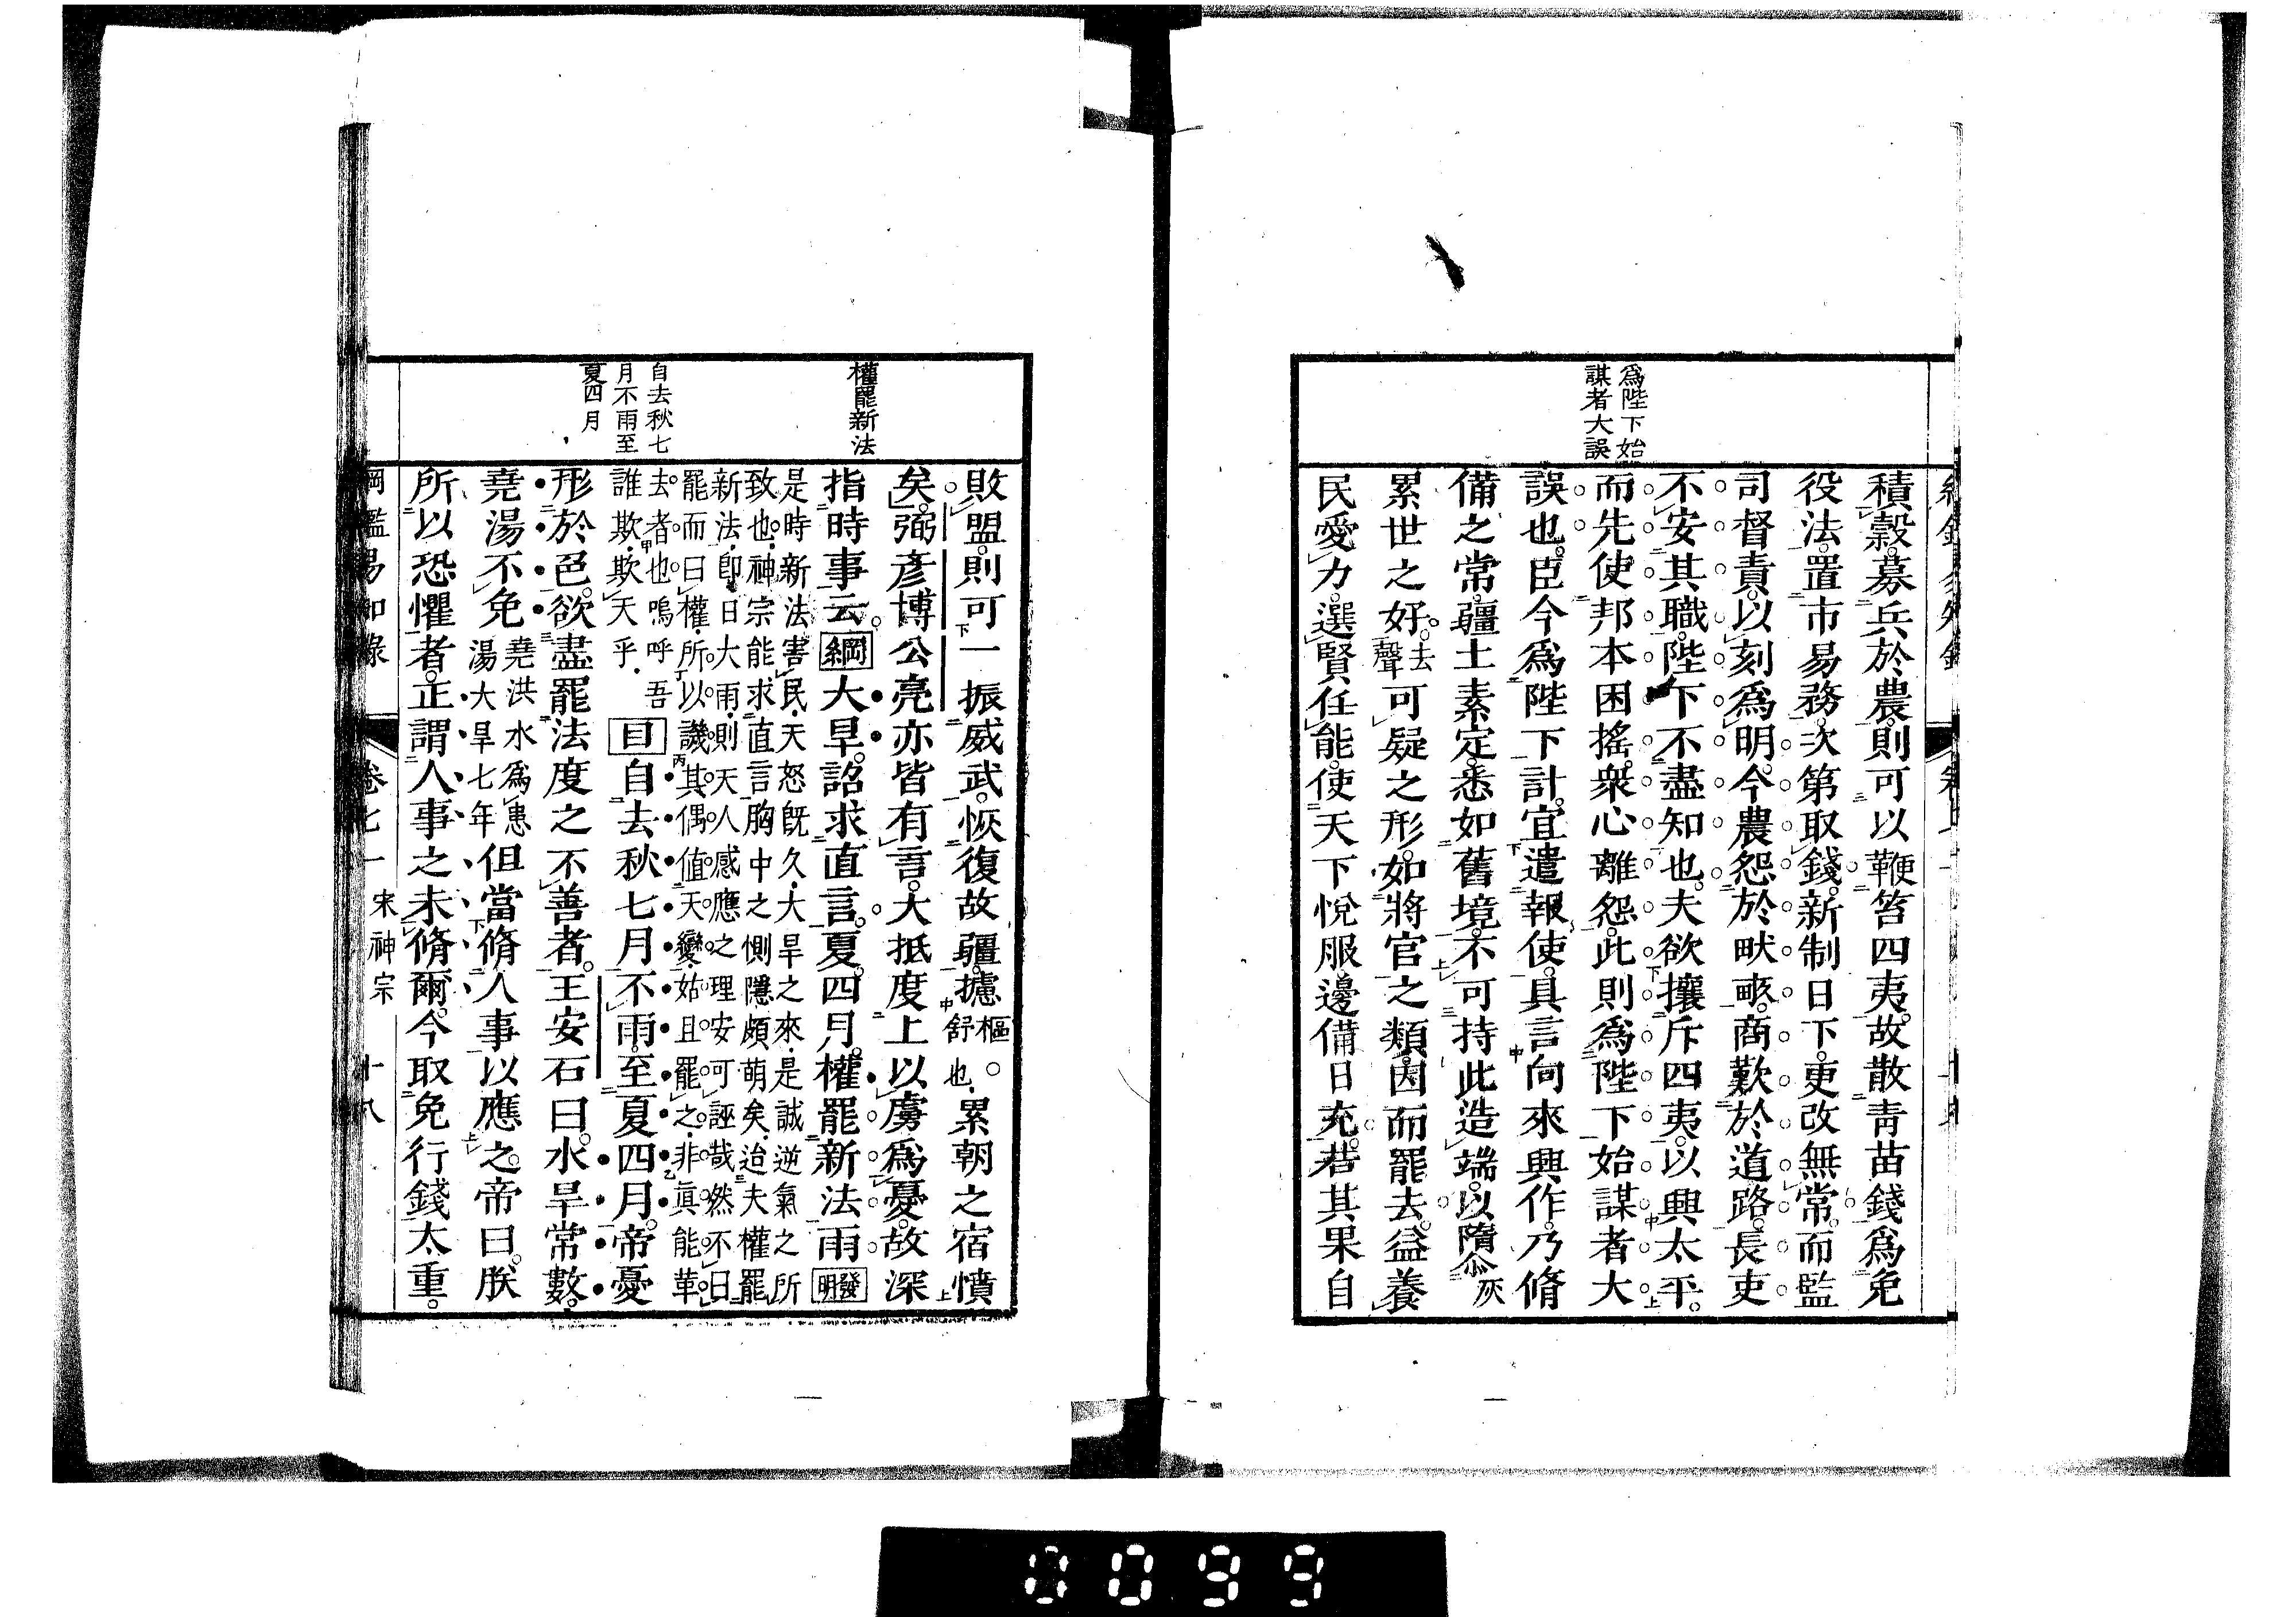 爲陛下始
謀者大誤
積穀募兵於農則可以鞭笞四夷故散青苗錢爲免
役法置市易務次第取錢新制日下更改無常而監
司督責以刻爲明今農怨於畎畝商歎於道路長吏
不安其職陛下不盡知也夫欲攘斥四夷以興太平
而先使邦本困搖衆心離怨此則爲陛下始謀者大
誤也臣今爲陛下計宜遣報使具言向來興作乃脩
備之常疆土素定悉如舊境不可持此造端以隋灰
累世之好去聲可疑之形如將官之類因而罷去益養
民愛力選賢任能使天下悅服邊備日充若其果自
權罷新法
自去秋七
月不雨至
夏四月
敗盟則可一振威武恢復故疆攄樞舒也累朝之宿憤
矣弼彥博公亮亦皆有言大抵度上以虜爲憂故深
指時事云綱大旱詔求直言夏四月權罷新法雨發明
是時新法害民天怒旣久大旱之來是誠逆氣之所
致也神宗能求直言胸中之惻隱頗萌矣迨夫權罷
新法卽日大雨則天人感應之理安可誣哉然不曰
罷而曰權所以譏其偶值天變姑且罷之非眞能革
去者也嗚呼吾
誰欺欺天乎目自去秋七月不雨至夏四月帝憂
形於色欲盡罷法度之不善者王安石曰水旱常數
堯湯不免堯洪水爲患湯大旱七年但當脩人事以應之帝曰朕
所以恐懼者正謂人事之未脩爾今取免行錢太重
綱鑑易知錄 卷七一 宋神宗 十八
0099